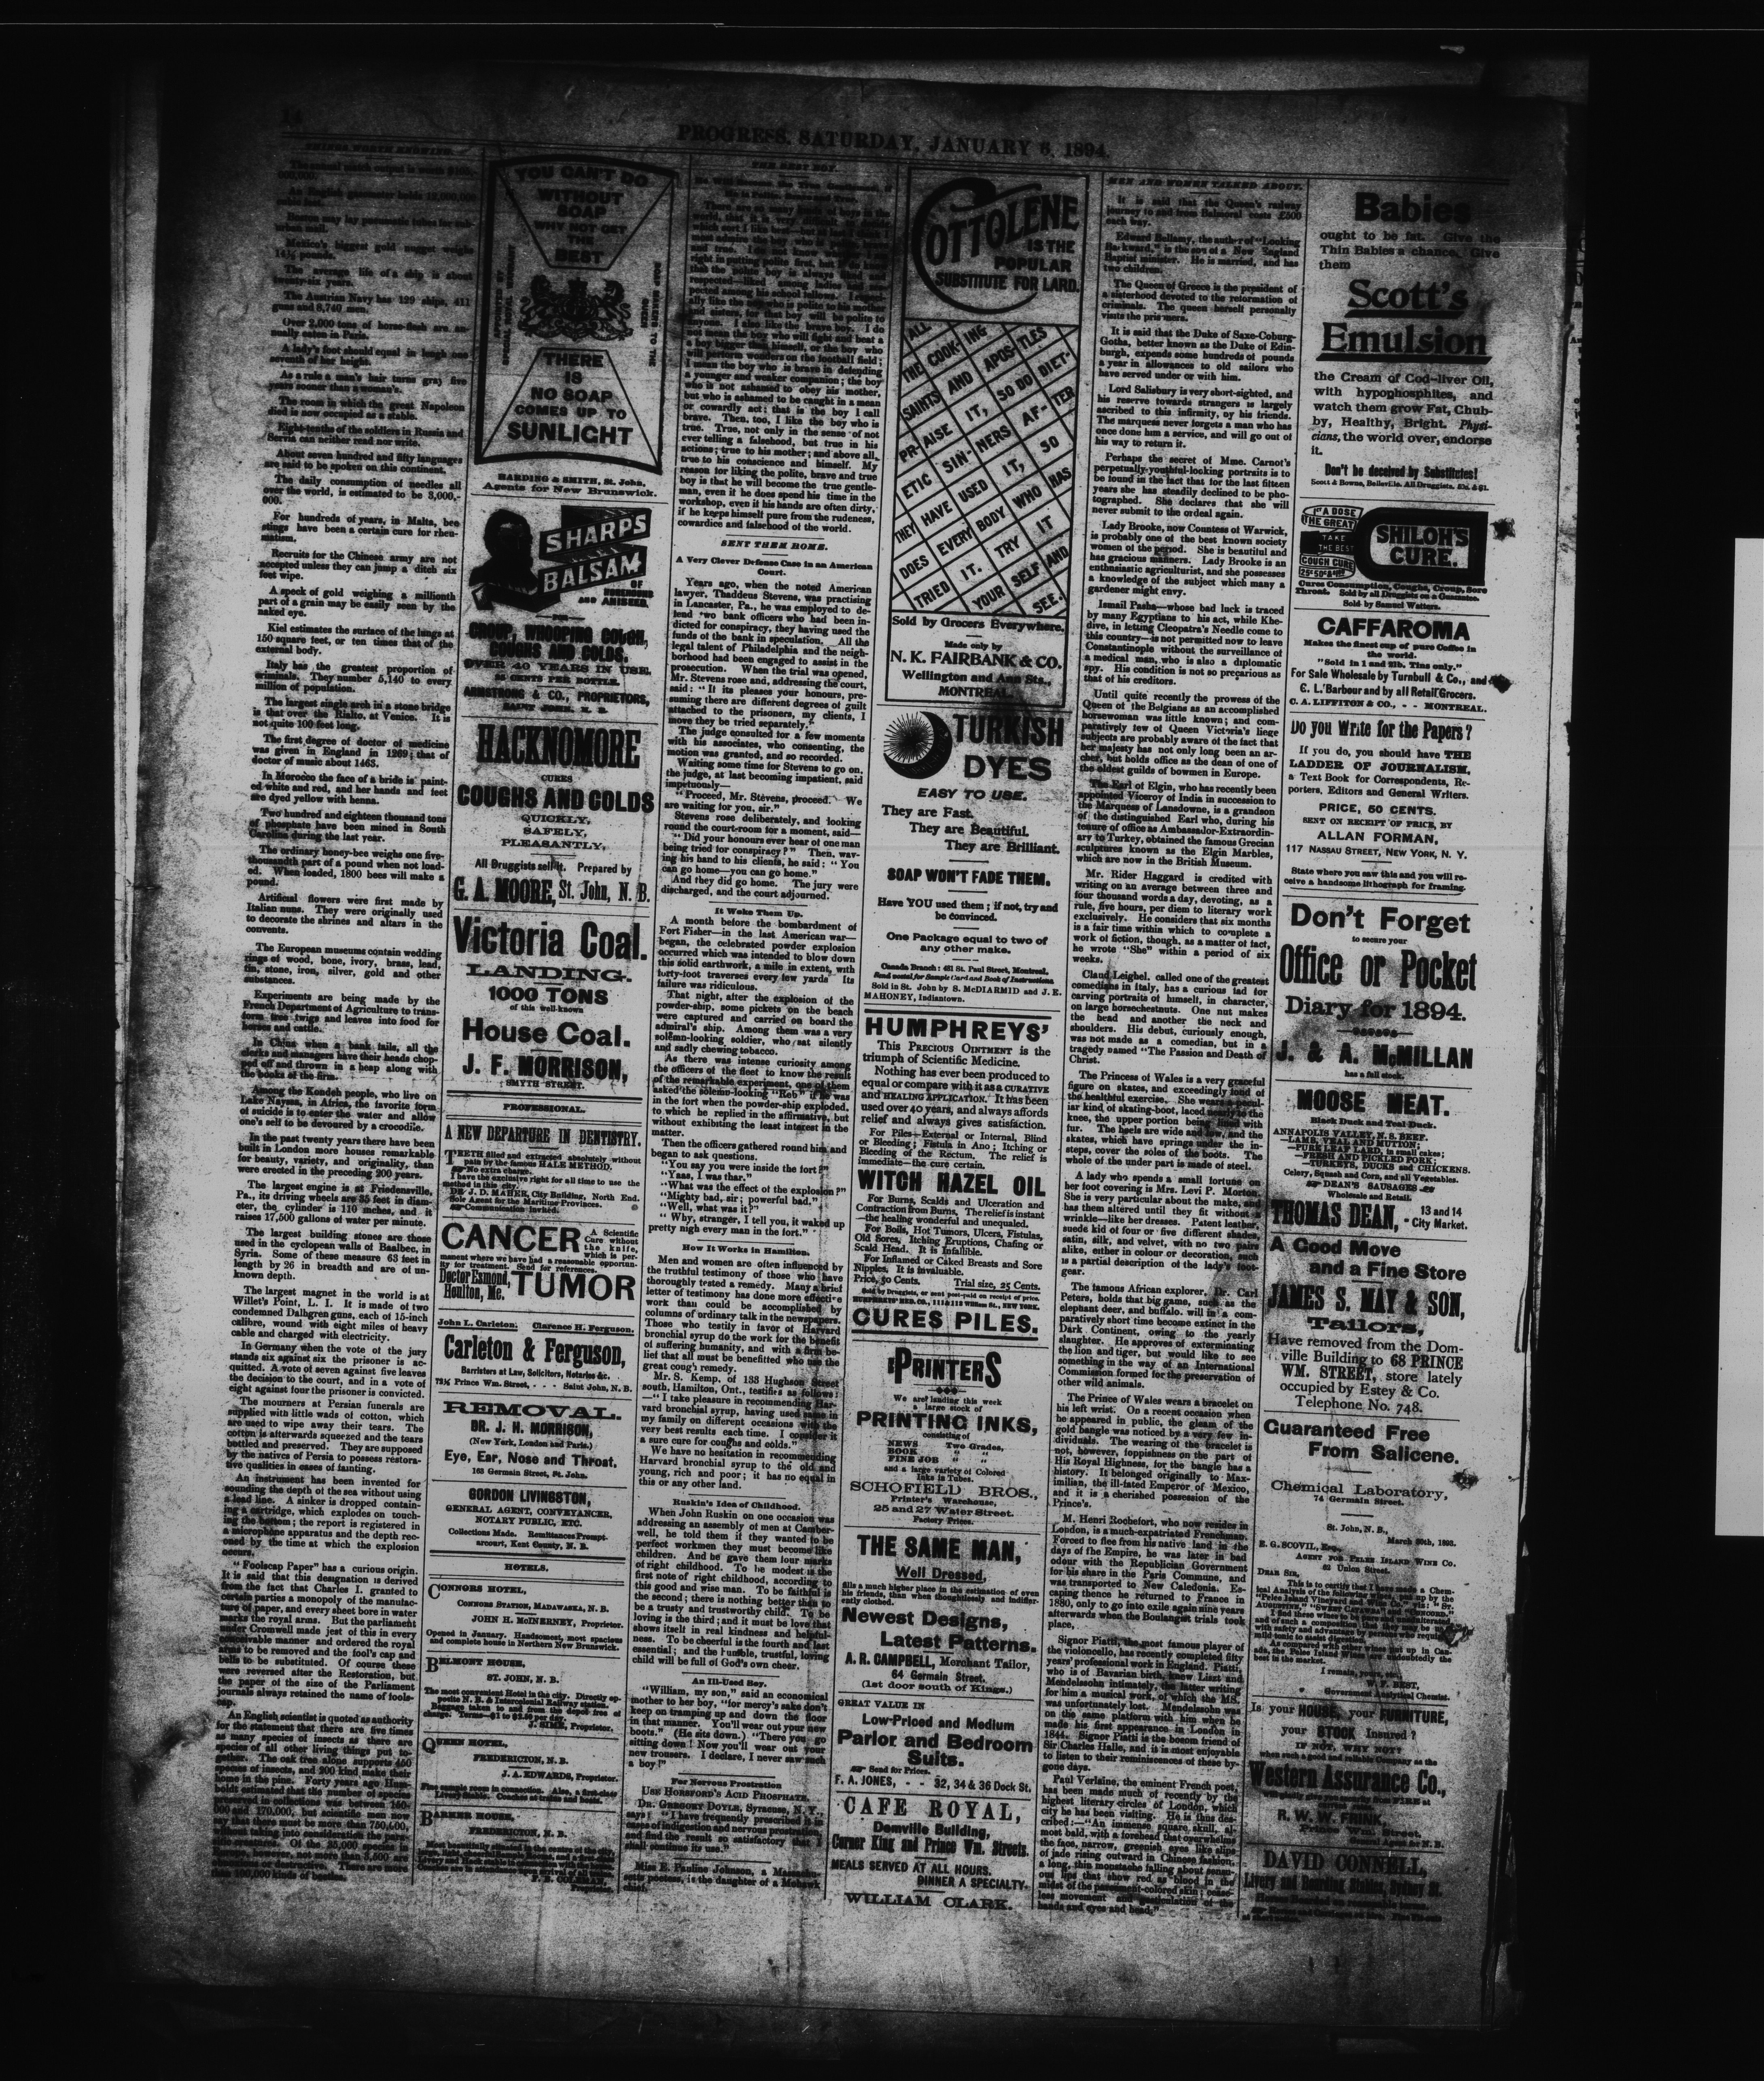 14
PROGRESS, SATURDAY, JANUARY 6, 1894.
THINGS WORTH KNOWING.
Mexico's biggest gold nugget weighs
The average life of a ship is about
twenty-six years.
The Austrian Navy has 129 ships, 411
guns and 8,740 men.
Over 2,000 tons of horse-flesh are an-
nually eaten in Paris.
A lady's foot should equal in length one
seventh of her height.
As a rule a man's hair turns gray five
years sooner than a woman's.
The room in which the great Napoleon
died is now occupied as a stable.
Eight-tenths of the soldiers in Russia and
Servia can neither read nor write.
About seven hundred and fifty languages
are said to be spoken on this continent.
The daily consumption of needles all
over the world, is estimated to be 3,000,-
000.
For hundreds of years, in Malta, bee
stings have been a certain cure for rheu-
matism.
Recruits for the Chinese army are not
accepted unless they can jump a ditch six
feet wipe.
A speck of gold weighing a millionth
part of a grain may be easily seen by the
naked eye.
Kiel estimates the surface of the lungs at
150 square feet, or ten times that of the
external body.
Italy has the greatest proportion of
criminals. They number 5,140 to every
million of population.
The largest single arch in a stone bridge
is that over the Rialto, at Venice. It is
not quite 100 feet long.
The first degree of doctor of medicine
was given in England in 1269; that of
doctor of music about 1463.
In Morocco the face of a bride is paint-
ed white and red, and her hands and feet
are dyed yellow with henna.
Two hundred and eighteen thousand tons
of phosphate have been mined in South
Carolina during the last year.
The ordinary honey-bee weighs one five-
thousandth part of a pound when not load-
ed. When loaded, 1800 bees will make a
pound.
Artificial flowers were first made by
Italian nuns. They were originally used
to decorate the shrines and altars in the
convents.
The European museums contain wedding
rings of wood, bone, ivory, brass, lead,
tin, stone, iron, silver, gold and other
substances.
Experiments are being made by the
French Department of Agriculture to trans-
form tree twigs and leaves into food for
horses and cattle.
In China when a bank fails, all the
clerks and managers have their heads chop-
ped off and thrown in a heap along with
the books of the firm.
Among the Kondeh people, who live on
Lake Nayssa, in Africa, the favorite form
of suicide is to enter the water and allow
one's self to be devoured by a crocodile.
In the past twenty years there have been
built in London more houses remarkable
for beauty, variety, and originality, than
were erected in the preceding 200 years.
The largest engine is at Friedensville,
Pa., its driving wheels are 35 feet in diam-
eter, the cylinder is 110 inches, and it
raises 17,500 gallons of water per minute.
The largest building stones are those
used in the cyclopean walls of Baalbec, in
Syria. Some of these measure 63 feet in
length by 26 in breadth and are of un-
known depth.
The largest magnet in the world is at
Willet's Point, L. I. It is made of two
condemned Dalhgren guns, each of 15-inch
calibre, wound with eight miles of heavy
cable and charged with electricity.
In Germany when the vote of the jury
stands six against six the prisoner is ac-
quitted. A vote of seven against five leaves
the decision to the court, and in a vote of
eight against four the prisoner is convicted.
The mourners at Persian funerals are
supplied with little wads of cotton, which
are used to wipe away their tears. The
cotton is afterwards squeezed and the tears
bottled and preserved. They are supposed
by the natives of Persia to possess restora-
tive qualities in cases of fainting.
An instrument has been invented for
sounding the depth of the sea without using
a lead line. A sinker is dropped contain-
ing a cartridge, which explodes on touch-
ing the bottom; the report is registered in
a microphone apparatus and the depth rec-
oned by the time at which the explosion
occurs.
"Foolscap Paper" has a curious origin.
It is said that this designation is derived
from the fact that Charles I. granted to
certain parties a monopoly of the manufac-
ture of paper, and every sheet bore in water
marks the royal arms. But the parliament
under Cromwell made jest of this in every
conceivable manner and ordered the royal
arms to be removed and the fool's cap and
bells to be substituted. Of course these
were reversed after the Restoration, but
the paper of the size of the Parliament
journals always retained the name of fools-
cap.
An English scientist is quoted as authority
for the statement that there are five times
as many species of insects as there are
species of all other living things put to-
gether. The oak tree alone supports 450
species of insects, and 200 kind make their
home in the pine. Forty years ago Hum-
boldt estimated that the number of species
preserved in collections was between 150-
000 and 170,000, but scientific men now
say that there must be more than 750,000,
without taking into consideration the para-
than 100,000 kinds of beetles.
YOU CAN'T DO
WITHOUT
SOAP
WHY NOT GET
THE
BEST
THERE
IS
NO SOAP
COMES UP TO
SUNLIGHT
HARDING & SMITH, St. John,
Agents for New Brunswick.
SHARPS
BALSAM
OF
HOREHOUND
AND ANISEED.
CROUP, WHOOPING COUGH,
COUGHS AND COLDS.
OVER 40 YEARS IN USE.
25 CENTS PER BOTTLE.
ARMSTRONG & CO., PROPRIETORS,
SAINT JOHN, N. B.
HACKNOMORE
CURES
COUGHS AND COLDS
QUICKLY,
SAFELY,
PLEASANTLY,
All Druggists sell it. Prepared by
G. A. MOORE, St. John, N. B.
Victoria Coal.
LANDING.
1000 TONS
of this well-known
House Coal.
J. F. MORRISON,
SMYTH STREET.
PROFESSIONAL.
A NEW DEPARTURE IN DENTISTRY.
TEETH filled and extracted absolutely without
pain by the famous HALE METHOD.
No extra charge.
I have the exclusive right for all time to use the
method in this city.
DR. J. D. MAHER, City Building, North End.
Sole Agent for the Maritime Provinces.
Communication invited.
CANCER
A Scientific
Cure without
the knife,
which is per-
manent where we have had a reasonable opportun-
ity for treatment. Send for references.
Doctor Esmond,
Houlton, Me.
TUMOR
John L. Carleton. Clarence H. Ferguson.
Carleton & Ferguson,
Barristers at Law, Solicitors, Notaries &c.
72½ Prince Wm. Street, - - - Saint John, N. B.
REMOVAL.
DR. J. H. MORRISON,
(New York, London and Paris.)
Eye, Ear, Nose and Throat.
163 Germain Street, St. John.
GORDON LIVINGSTON,
GENERAL AGENT, CONVEYANCER,
NOTARY PUBLIC, ETC.
Collections Made. Remittances Prompt.
Harcourt, Kent County, N. B.
HOTELS.
CONNORS HOTEL,
CONNORS STATION, MADAWASKA, N. B.
JOHN H. McINERNEY, Proprietor.
Opened in January. Handsomest, most spacious
and complete house in Northern New Brunswick.
BELMONT HOUSE,
ST. JOHN, N. B.
The most convenient Hotel in the city. Directly op-
posite N. B. & Intercolonial Railway station.
Baggage taken to and from the depot free of
charge. Terms—$1 to $2.50 per day.
J. SIME, Proprietor.
QUEEN HOTEL,
FREDERICTON, N. B.
J. A. EDWARDS, Proprietor.
Fine sample room in connection. Also, a first-class
Livery Stable. Coaches at trains and boats.
BARKER HOUSE,
FREDERICTON, N. B.
F. B. COLEMAN,
Proprietor.
THE BEST BOY.
respected—liked among ladies and res-
pected among his school fellows. I especi-
ally like the boy who is polite to his mother
and sisters, for that boy will be polite to
anyone. I also like the brave boy. I do
not mean the boy who will fight and beat a
a boy bigger than himself, or the boy who
will perform wonders on the football field;
I mean the boy who is brave in defending
a younger and weaker companion; the boy
who is not ashamed to obey his mother,
but who is ashamed to be caught in a mean
or cowardly act; that is the boy I call
brave. Then, too, I like the boy who is
true. True, not only in the sense of not
ever telling a falsehood, but true in his
actions; true to his mother; and above all,
true to his conscience and himself. My
reason for liking the polite, brave and true
boy is that he will become the true gentle-
man, even if he does spend his time in the
workshop, even if his hands are often dirty,
if he keeps himself pure from the rudeness,
cowardice and falsehood of the world.
SENT THEM HOME.
A Very Clever Defense Case in an American
Court.
Years ago, when the noted American
lawyer, Thaddeus Stevens, was practising
in Lancaster, Pa., he was employed to de-
fend two bank officers who had been in-
dicted for conspiracy, they having used the
funds of the bank in speculation. All the
legal talent of Philadelphia and the neigh-
borhood had been engaged to assist in the
prosecution. When the trial was opened,
Mr. Stevens rose and, addressing the court,
said: "It its pleases your honours, pre-
suming there are different degrees of guilt
attached to the prisoners, my clients, I
move they be tried separately."
The judge consulted for a few moments
with his associates, who consenting, the
motion was granted, and so recorded.
Waiting some time for Stevens to go on,
the judge, at last becoming impatient, said
impetuously—
"Proceed, Mr. Stevens, proceed. We
are waiting for you, sir."
Stevens rose deliberately, and looking
round the court-room for a moment, said—
"Did your honours ever hear of one man
being tried for conspiracy?" Then, wav-
ing his hand to his clients, he said: "You
can go home—you can go home."
And they did go home. The jury were
discharged, and the court adjourned.
It Woke Them Up.
A month before the bombardment of
Fort Fisher—in the last American war—
began, the celebrated powder explosion
occurred which was intended to blow down
this solid earthwork, a mile in extent, with
forty-foot traverses every few yards Its
failure was ridiculous.
That night, after the explosion of the
powder-ship, some pickets on the beach
were captured and carried on board the
admiral's ship. Among them was a very
solemn-looking soldier, who sat silently
and sadly chewing tobacco.
As there was intense curiosity among
the officers of the fleet to know the result
of the remarkable experiment, one of them
asked the solemn-looking "Reb" if he was
in the fort when the powder-ship exploded,
to which he replied in the affirmative, but
without exhibiting the least interest in the
matter.
Then the officers gathered round him and
began to ask questions.
"You say you were inside the fort?"
"Yaas, I was thar."
"What was the effect of the explosion?"
"Mighty bad, sir; powerful bad."
"Well, what was it?"
"Why, stranger, I tell you, it waked up
pretty nigh every man in the fort."
How It Works in Hamilton.
Men and women are often influenced by
the truthful testimony of those who have
thoroughly tested a remedy. Many a brief
letter of testimony has done more effective
work than could be accomplished by
columns of ordinary talk in the newspapers.
Those who testify in favor of Harvard
bronchial syrup do the work for the benefit
of suffering humanity, and with a firm be-
lief that all must be benefitted who use the
great cough remedy.
Mr. S. Kemp, of 138 Hughson Street
south, Hamilton, Ont., testifies as follows:
—"I take pleasure in recommending Har-
vard bronchial syrup, having used same in
my family on different occasions with the
very best results each time. I consider it
a sure cure for coughs and colds."
We have no hesitation in recommending
Harvard bronchial syrup to the old and
young, rich and poor; it has no equal in
this or any other land.
Ruskin's Idea of Childhood.
When John Ruskin on one occasion was
addressing an assembly of men at Camber-
well, he told them if they wanted to be
perfect workmen they must become like
children. And be gave them four marks
of right childhood. To be modest is the
first note of right childhood, according to
this good and wise man. To be faithful is
the second; there is nothing better than to
be a trusty and trustworthy child. To be
loving is the third; and it must be love that
shows itself in real kindness and helpful-
ness. To be cheerful is the fourth and last
essential; and the humble, trustful, loving
child will be full of God's own cheer.
An Ill-Used Boy.
"William, my son," said an economical
mother to her boy, "for mercy's sake don't
keep on tramping up and down the floor
in that manner. You'll wear out your new
boots." (He sits down.) "There you go
sitting down! Now you'll wear out your
new trousers. I declare, I never saw such
a boy!"
For Nervous Prostration
USE HORSFORD'S ACID PHOSPHATE.
DR. GREGORY DOYLE, Syracuse, N. Y.,
says: "I have frequently prescribed it in
cases of indigestion and nervous prostration,
and find the result so satisfactory that I
shall continue its use."
Miss E. Pauline Johnson, a Massachu-
setts poetess, is the daughter of a Mohawk
chief.
COTTOLENE
IS THE
POPULAR
SUBSTITUTE FOR LARD.
ALL
THE COOK-ING
SAINTS AND APOS-TLES
PR-AISE IT, SO DO DIET-
ETIC SIN-NERS AF-TER
THEY HAVE USED IT, SO
DOES EVERY BODY WHO HAS
TRIED IT. TRY IT
YOUR SELF AND
SEE.
Sold by Grocers Everywhere.
Made only by
N. K. FAIRBANK & CO.
Wellington and Ann Sts.,
MONTREAL.
TURKISH
DYES
EASY TO USE.
They are Fast.
They are Beautiful.
They are Brilliant.
SOAP WON'T FADE THEM.
Have YOU used them; if not, try and
be convinced.
One Package equal to two of
any other make.
Canada Branch: 481 St. Paul Street, Montreal.
Send postal for Sample Card and Book of Instructions
Sold in St. John by S. McDIARMID and J. E.
MAHONEY, Indiantown.
HUMPHREYS'
This PRECIOUS OINTMENT is the
triumph of Scientific Medicine.
Nothing has ever been produced to
equal or compare with it as a CURATIVE
and HEALING APPLICATION. It has been
used over 40 years, and always affords
relief and always gives satisfaction.
For Piles—External or Internal, Blind
or Bleeding; Fistula in Ano; Itching or
Bleeding of the Rectum. The relief is
immediate—the cure certain.
WITCH HAZEL OIL
For Burns, Scalds and Ulceration and
Contraction from Burns. The relief is instant
—the healing wonderful and unequaled.
For Boils, Hot Tumors, Ulcers, Fistulas,
Old Sores, Itching Eruptions, Chafing or
Scald Head. It is Infallible.
For Inflamed or Caked Breasts and Sore
Nipples. It is invaluable.
Price, 50 Cents. Trial size, 25 Cents.
Sold by Druggists, or sent post-paid on receipt of price.
HUMPHREYS' MED. CO., 111 & 113 William St., NEW YORK.
CURES PILES.
PRINTERS
We are landing this week
a large stock of
PRINTING INKS,
consisting of
NEWS Two Grades,
BOOK " "
FINE JOB " "
and a large variety of Colored
Inks in Tubes.
SCHOFIELD BROS.,
Printer's Warehouse,
25 and 27 Water Street.
Factory Prices.
THE SAME MAN,
Well Dressed,
fills a much higher place in the estimation of even
his friends, than when thoughtlessly and indiffer-
ently clothed.
Newest Designs,
Latest Patterns.
A. R. CAMPBELL, Merchant Tailor,
64 Germain Street.
(1st door south of Kings.)
GREAT VALUE IN
Low-Priced and Medium
Parlor and Bedroom
Suits.
Send for Prices.
F. A. JONES, - - 32, 34 & 36 Dock St.
CAFE ROYAL,
Domville Building,
Corner King and Prince Wm. Streets.
MEALS SERVED AT ALL HOURS.
DINNER A SPECIALTY.
WILLIAM CLARK.
MEN AND WOMEN TALKED ABOUT.
It is said that the Queen's railway
journey to and from Balmoral costs £500
each way.
Edward Bellamy, the author of "Looking
Backward," is the son of a New England
Baptist minister. He is married, and has
two children.
The Queen of Greece is the president of
a sisterhood devoted to the reformation of
criminals. The queen herself personally
visits the prisoners.
It is said that the Duke of Saxe-Coburg-
Gotha, better known as the Duke of Edin-
burgh, expends some hundreds of pounds
a year in allowances to old sailors who
have served under or with him.
Lord Salisbury is very short-sighted, and
his reserve towards strangers is largely
ascribed to this infirmity, by his friends.
The marquess never forgets a man who has
once done him a service, and will go out of
his way to return it.
Perhaps the secret of Mme. Carnot's
perpetually-youthful-looking portraits is to
be found in the fact that for the last fifteen
years she has steadily declined to be pho-
tographed. She declares that she will
never submit to the ordeal again.
Lady Brooke, now Countess of Warwick,
is probably one of the best known society
women of the period. She is beautiful and
has gracious manners. Lady Brooke is an
enthusiastic agriculturist, and she possesses
a knowledge of the subject which many a
gardener might envy.
Ismail Pasha—whose bad luck is traced
by many Egyptians to his act, while Khe-
dive, in letting Cleopatra's Needle come to
this country—is not permitted now to leave
Constantinople without the surveillance of
a medical man, who is also a diplomatic
spy. His condition is not so precarious as
that of his creditors.
Until quite recently the prowess of the
Queen of the Belgians as an accomplished
horsewoman was little known; and com-
paratively few of Queen Victoria's liege
subjects are probably aware of the fact that
her majesty has not only long been an ar-
cher, but holds office as the dean of one of
the eldest guilds of bowmen in Europe.
The Earl of Elgin, who has recently been
appointed Viceroy of India in succession to
the Marquess of Lansdowne, is a grandson
of the distinguished Earl who, during his
tenure of office as Ambassador-Extraordin-
ary to Turkey, obtained the famous Grecian
sculptures known as the Elgin Marbles,
which are now in the British Museum.
Mr. Rider Haggard is credited with
writing on an average between three and
four thousand words a day, devoting, as a
rule, five hours, per diem to literary work
exclusively. He considers that six months
is a fair time within which to complete a
work of fiction, though, as a matter of fact,
he wrote "She" within a period of six
weeks.
Claud Leigbel, called one of the greatest
comedians in Italy, has a curious fad for
carving portraits of himself, in character,
on large horsechestnuts. One nut makes
the head and another the neck and
shoulders. His debut, curiously enough,
was not made as a comedian, but in a
tragedy named "The Passion and Death of
Christ.
The Princess of Wales is a very graceful
figure on skates, and exceedingly fond of
the healthful exercise. She wears a pecul-
iar kind of skating-boot, laced nearly to the
knee, the upper portion being lined with
fur. The heels are wide and low, and the
skates, which have springs under the in-
steps, cover the soles of the boots. The
whole of the under part is made of steel.
A lady who spends a small fortune on
her foot covering is Mrs. Levi P. Morton.
She is very particular about the make, and
has them altered until they fit without a
wrinkle—like her dresses. Patent leather,
suede kid of four or five different shades,
satin, silk, and velvet, with no two pairs
alike, either in colour or decoration, such
is a partial description of the lady's foot-
gear.
The famous African explorer, Dr. Carl
Peters, holds that big game, such as the
elephant deer, and buffalo, will in a com-
paratively short time become extinct in the
Dark Continent, owing to the yearly
slaughter. He approves of exterminating
the lion and tiger, but would like to see
something in the way of an International
Commission formed for the preservation of
other wild animals.
The Prince of Wales wears a bracelet on
his left wrist. On a recent occasion when
he appeared in public, the gleam of the
gold bangle was noticed by a very few in-
dividuals. The wearing of the bracelet is
not, however, foppishness on the part of
His Royal Highness, for the bangle has a
history. It belonged originally to Max-
imilian, the ill-fated Emperor of Mexico,
and it is a cherished possession of the
Prince's.
M. Henri Rochefort, who now resides in
London, is a much-expatriated Frenchman.
Forced to flee from his native land in the
days of the Empire, he was later in bad
odour with the Republican Government
for his share in the Paris Commune, and
was transported to New Caledonia. Es-
caping thence he returned to France in
1880, only to go into exile again nine years
afterwards when the Boulangist trials took
place,
Signor Piatti, the most famous player of
the violoncello, has recently completed fifty
years' professional work in England. Piatti,
who is of Bavarian birth, knew Liszt and
Mendelssohn intimately, the latter writing
for him a musical work, of which the MS.
was unfortunately lost. Mendelssohn was
on the same platform with him when he
made his first appearance in London in
1844. Signor Piatti is the bosom friend of
Sir Charles Halle, and it is most enjoyable
to listen to their reminiscences of these by-
gone days.
Paul Verlaine, the eminent French poet,
has been made much of recently by the
highest literary circles of London, which
city he has been visiting. He is thus des-
cribed:—"An immense square skull, al-
most bald, with a forehead that overwhelms
the face, narrow, greenish eyes like slips
of jade rising outward in Chinese fashion,
a long, thin moustache falling about sensu-
ous lips that show red as blood in the
midst of the parchment-colored skin; cease-
less movement and gesticulation of the
hands and eyes and head."
Babies
ought to be fat. Give the
Thin Babies a chance. Give
them
Scott's
Emulsion
the Cream of Cod-liver Oil,
with hypophosphites, and
watch them grow Fat, Chub-
by, Healthy, Bright. Physi-
cians, the world over, endorse
it.
Don't be deceived by Substitutes!
Scott & Bowne, Belleville. All Druggists. 50c. & $1.
1¢ A DOSE
THE GREAT
TAKE
THE BEST
COUGH CURE
25¢ 50¢ &
SHILOH'S
CURE.
Cures Consumption, Coughs, Croup, Sore
Throat. Sold by all Druggists on a Guarantee.
Sold by Samuel Watters.
CAFFAROMA
Makes the finest cup of pure Coffee in
the world.
"Sold in 1 and 2lb. Tins only."
For Sale Wholesale by Turnbull & Co., and
G. L. Barbour and by all Retail Grocers.
C. A. LIFFITON & CO., - - MONTREAL.
Do you Write for the Papers?
If you do, you should have THE
LADDER OF JOURNALISM,
a Text Book for Correspondents, Re-
porters, Editors and General Writers.
PRICE, 50 CENTS.
SENT ON RECEIPT OF PRICE, BY
ALLAN FORMAN,
117 NASSAU STREET, NEW YORK, N. Y.
State where you saw this and you will re-
ceive a handsome lithograph for framing.
Don't Forget
to secure your
Office or Pocket
Diary for 1894.
J. & A. McMILLAN
has a full stock.
MOOSE MEAT.
Black Duck and Teal Duck.
ANNAPOLIS VALLEY, N. S. BEEF.
—LAMB, VEAL AND MUTTON;
—PURE LEAF LARD, in small cakes;
—FRESH AND PICKLED PORK;
—TURKEYS, DUCKS and CHICKENS.
Celery, Squash and Corn, and all Vegetables.
DEAN'S SAUSAGES
Wholesale and Retail.
THOMAS DEAN, - 13 and 14
City Market.
A Good Move
and a Fine Store
JAMES S. MAY & SON,
Tailors,
Have removed from the Dom-
ville Building to 68 PRINCE
WM. STREET, store lately
occupied by Estey & Co.
Telephone No. 748.
Guaranteed Free
From Salicene.
Chemical Laboratory,
74 Germain Street.
St. John, N. B.,
March 30th, 1893.
E. G. SCOVIL, Esq.,
AGENT FOR PELEE ISLAND WINE CO.
62 Union Street.
DEAR SIR,
This is to certify that I have made a Chem-
ical Analysis of the following wines, put up by the
I remain, yours, etc.,
W. F. BEST,
Government Analytical Chemist.
Is your HOUSE, your FURNITURE,
your STOCK Insured?
IF NOT, WHY NOT?
when such a good and reliable Company as the
Western Assurance Co.,
R. W. W. FRINK,
Prince Wm. Street,
DAVID CONNELL,
Livery and Boarding Stables, Sydney St.